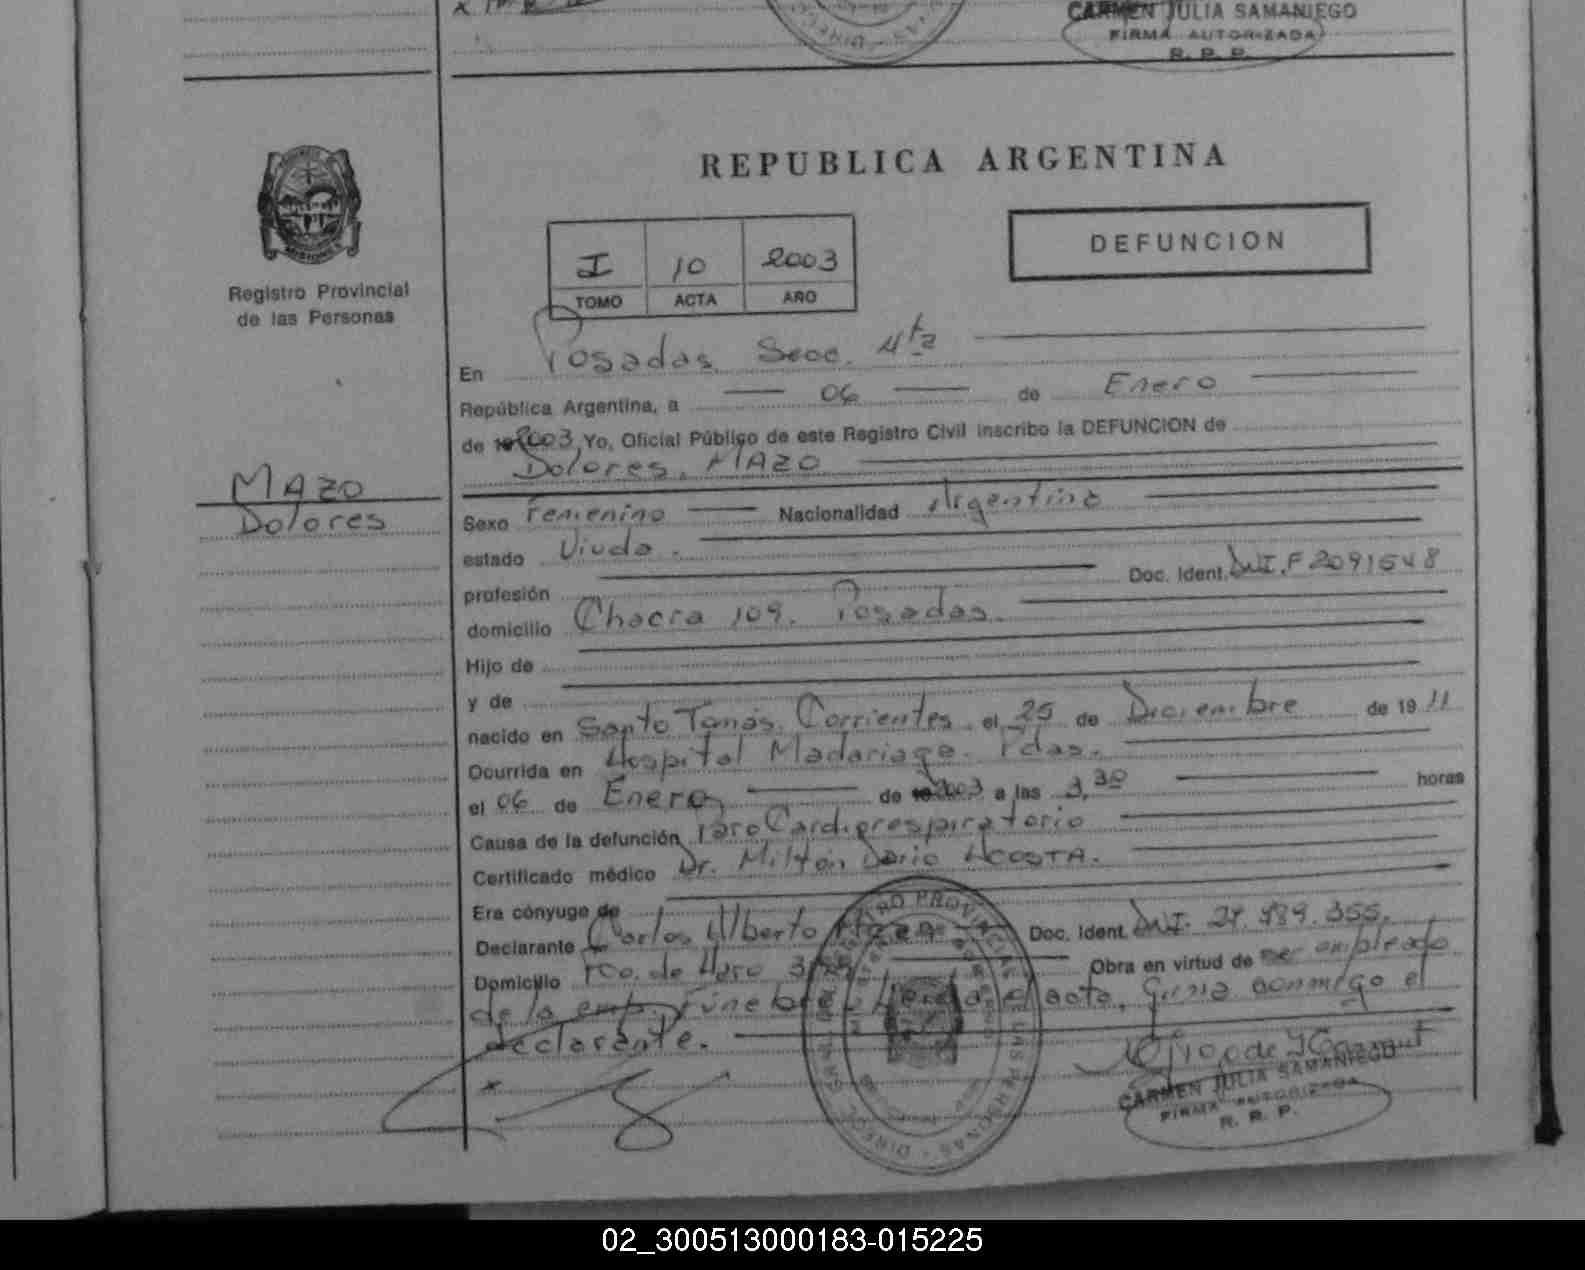 CARMEN JULIA SAMANIEGO
FIRMA AUTORIZADA
R. P. P.
REPUBLICA ARGENTINA
DEFUNCION
I 10 2003
TOMO ACTA AÑO
Registro Provincial
de las Personas
En Posadas Secc. 4ta
República Argentina, a 06 de Enero
de 2003 Yo, Oficial Público de este Registro Civil inscribo la DEFUNCION de
Dolores, MAZO
MAZO
Dolores
Sexo Femenino Nacionalidad Argentina
estado Viuda.
profesión Doc. Ident. DNI. F 2091548
domicilio Chacra 109. Posadas.
Hijo de
y de
nacido en Santo Tomás, Corrientes. el 25 de Diciembre de 1911
Ocurrida en Hospital Madariaga. Pdas.
el 06 de Enero de 2003 a las 3,30 horas
Causa de la defunción Paro Cardiorespiratorio
Certificado médico Dr. Milton Dario ACOSTA.
Era cónyuge de
Declarante Carlos Alberto Doc. Ident. DNI.
Domicilio Fco. de Haro Obra en virtud de ser empleado
de la emp. Fúnebre. el acta, firma conmigo el
declarante.
CARMEN JULIA SAMANIEGO
FIRMA AUTORIZADA
R. R. P.
02_300513000183-015225